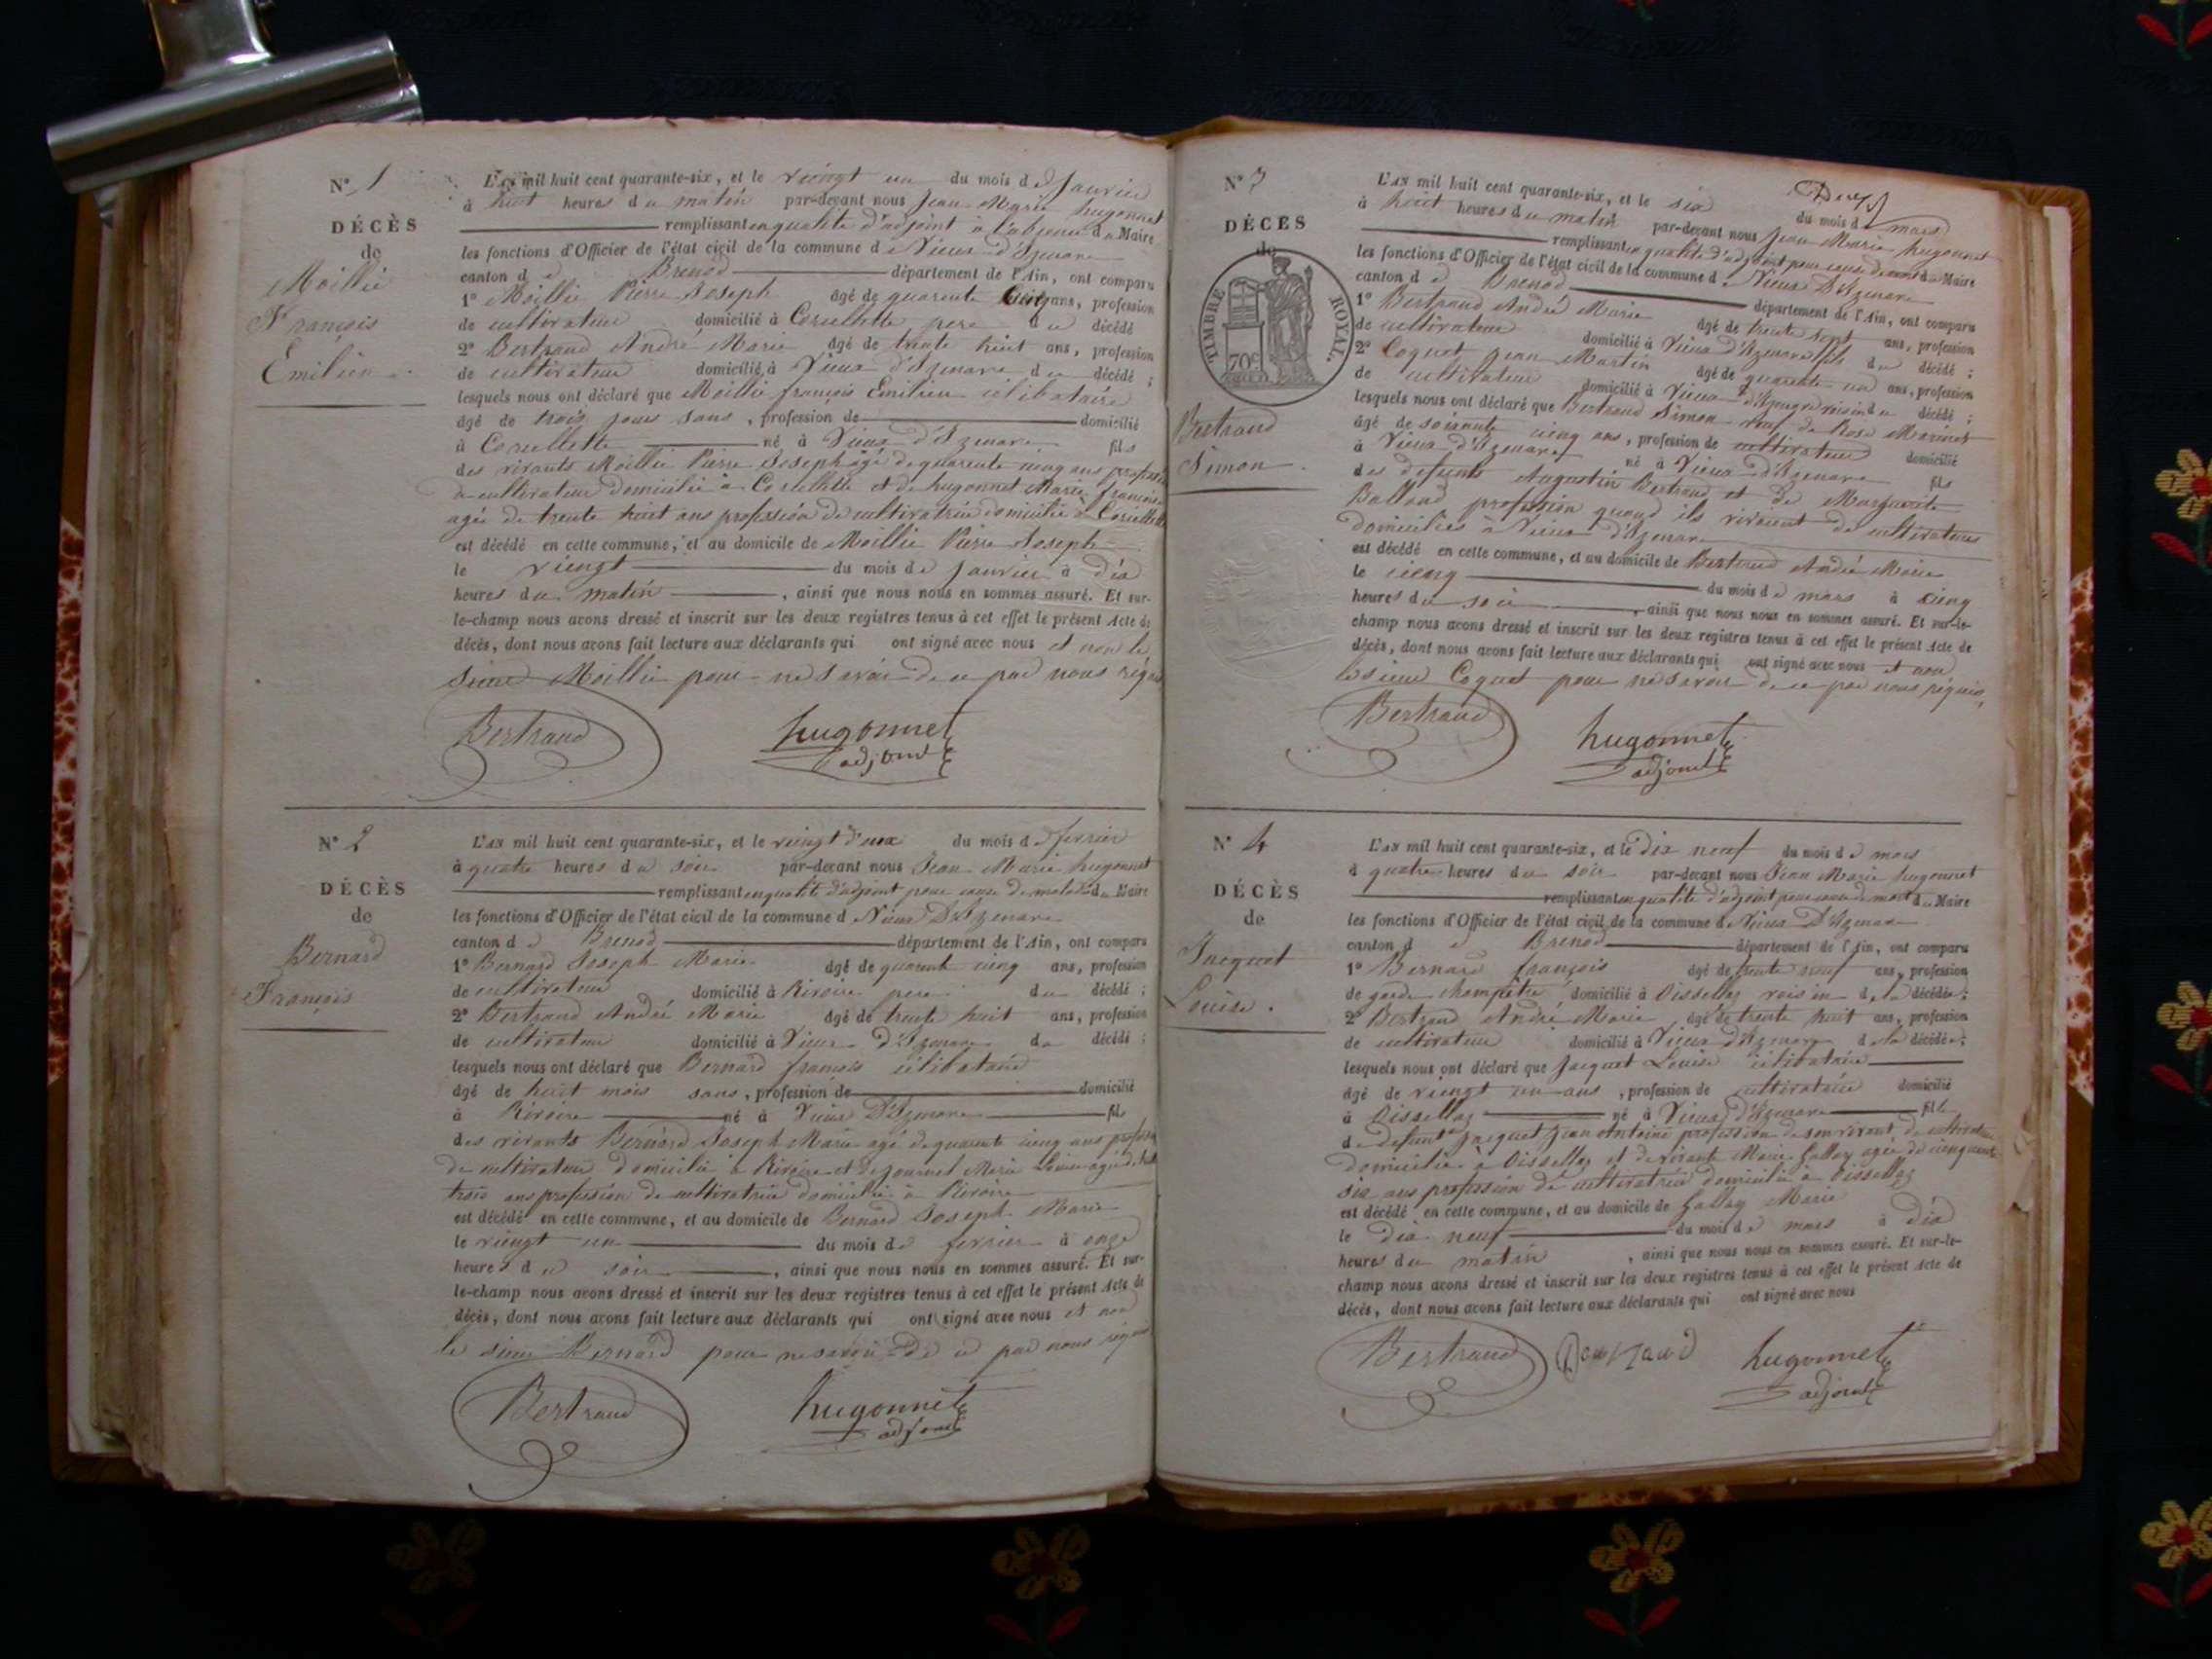 N° 1
DÉCÈS
de
Moillie
François
Emilien
L'AN mil huit cent quarante-six, et le vingt un du mois de Janvier
à huit heures du matin par-devant nous Jean Marie hugonnet
remplissant en qualité d'adjoint à l'absence du Maire
les fonctions d'Officier de l'état civil de la commune de Vieux d'Izenave
canton de Brenod département de l'Ain, ont comparu
1° Moillie Pierre Joseph âgé de quarente cinq ans, profession
de cultivateur domicilié à Corcellette pere du décédé
2° Bertrand André Marie âgé de trente huit ans, profession
de cultivateur domicilié à Vieux d'Izenave du décédé ;
lesquels nous ont déclaré que Moillie françois Emilien célibataire
âgé de trois jours sans, profession de domicilié
à Corcellette né à Vieux d'Izenave fils
des vivants Moillie Pierre Joseph âgé de quarente cinq ans profession
de cultivateur domicilié à Corcellette et de hugonnet Marie françoise
agée de trente huit ans profession de cultivatrice domicilié à Corcellette
est décédé en cette commune, et au domicile de Moillie Pierre Joseph
le vingt du mois de janvier à dix
heures du matin, ainsi que nous nous en sommes assuré. Et sur-
le-champ nous avons dressé et inscrit sur les deux registres tenus à cet effet le présent Acte de
décès, dont nous avons fait lecture aux déclarants qui ont signé avec nous et non le
sieur Moillie pour ne savoir de ce par nous régis
Bertrand hugonnet
adjoint
N° 2
DÉCÈS
de
Bernard
François
L'AN mil huit cent quarante-six, et le vingt deux du mois de fevrier
à quatre heures du soir par-devant nous Jean Marie hugonnet
remplissant en qualité d'adjoint pour cause de maladie du Maire
les fonctions d'Officier de l'état civil de la commune d Vieux D'Izenave
canton de Brenod département de l'Ain, ont comparu
1° Bernard Joseph Marie âgé de quarente cinq ans, profession
de cultivateur domicilié à Rivoire pere du décédé ;
2° Bertrand André Marie âgé de trente huit ans, profession
de cultivateur domicilié à Vieux D'Izenave du décédé ;
lesquels nous ont déclaré que Bernard françois célibataire
âgé de huit mois sans, profession de domicilié
à Rivoire né à Vieux D'Izenave fils
des vivants Bernard Joseph Marie agé de quarente cinq ans profession
de cultivateur domicilié à Rivoire et de Marie Louise agée de
trois ans profession de cultivatrice domicilié à Rivoire
est décédé en cette commune, et au domicile de Bernard Joseph Marie
le vingt un du mois de fevrier à onze
heures du soir, ainsi que nous nous en sommes assuré. Et sur-
le-champ nous avons dressé et inscrit sur les deux registres tenus à cet effet le présent Acte de
décès, dont nous avons fait lecture aux déclarants qui ont signé avec nous et non
le sieur Bernard pour ne savoir de ce par nous régis
Bertrand hugonnet
adjoint
N° 3
DÉCÈS
de
TIMBRE ROYAL.
70c
Bertrand
Simon
L'AN mil huit cent quarante-six, et le six du mois de mars
à huit heures du matin par-devant nous Jean Marie hugonnet
remplissant en qualité d'adjoint pour cause de mort du Maire
les fonctions d'Officier de l'état civil de la commune d Vieux D'Izenave
canton de Brenod département de l'Ain, ont comparu
1° Bertrand André Marie âgé de trente sept ans, profession
de cultivateur domicilié à Vieux d'Izenave fils du décédé ;
2° Coquet Jean Martin âgé de quarente un ans, profession
de cultivateur domicilié à Vieux d'Izenave voisin du décédé ;
lesquels nous ont déclaré que Bertrand Simon veuf de Rose
âgé de soixante cinq ans, profession de cultivateur domicilié
à Vieux d'Izenave né à Vieux d'Izenave fils
des defunts Augustin Bertrand et de Marguerite
Balland profession quand ils vivaient de cultivateurs
domiciliés à Vieux d'Izenave
est décédé en cette commune, et au domicile de Bertrand André Marie
le cinq du mois de mars à cinq
heures du soir, ainsi que nous nous en sommes assuré. Et sur-le-
champ nous avons dressé et inscrit sur les deux registres tenus à cet effet le présent Acte de
décès, dont nous avons fait lecture aux déclarants qui ont signé avec nous et non
le sieur Coquet pour ne savoir de ce par nous requis,
Bertrand hugonnet
adjoint
N° 4
DÉCÈS
de
Jacquet
Louise.
L'AN mil huit cent quarante-six, et le dix neuf du mois de mars
à quatre heures du soir par-devant nous Jean Marie hugonnet
remplissant en qualité d'adjoint pour cause de mort du Maire
les fonctions d'Officier de l'état civil de la commune de Vieux D'Izenave
canton d e Brenod département de l'Ain, ont comparu
1° Bernard françois âgé de trente neuf ans, profession
de garde champetre, domicilié à Oissellaz voisin de la décédée ;
2° Bertrand André Marie âgé de trente huit ans, profession
de cultivateur domicilié à Vieux d'Izenave de la décédée ;
lesquels nous ont déclaré que Jacquet Louise célibataire
âgé de vingt un ans, profession de cultivatrice domicilié
à Oissellaz né à Vieux d'Izenave fille
de defunt Jacquet Jean Antoine profession de son vivant de cultivateur
domicilié à Oissellaz et de vivante Marie Gallay agée de cinquante
six ans profession de cultivatrice domicilié à Oissellaz
est décédé en cette commune, et au domicile de Gallay Marie
le dix neuf du mois de mars à dix
heures du matin, ainsi que nous nous en sommes assuré. Et sur-le-
champ nous avons dressé et inscrit sur les deux registres tenus à cet effet le présent Acte de
décès, dont nous avons fait lecture aux déclarants qui ont signé avec nous
Bertrand hugonnet
adjoint